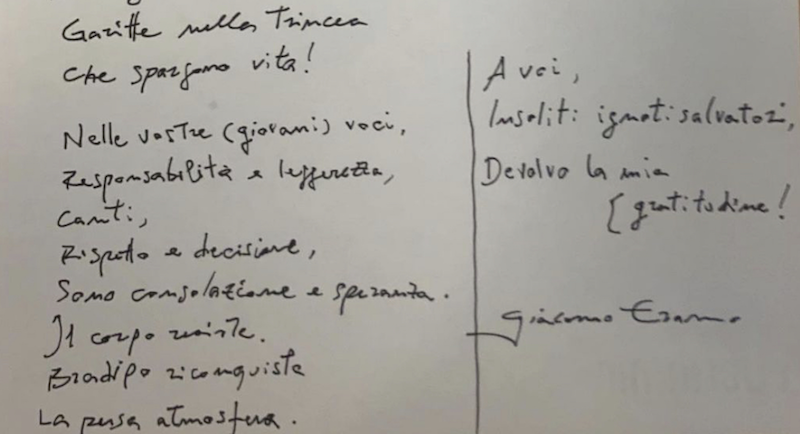 Garitte nella Trincea
Che spargono vita!
Nelle vostre (giovani) voci,
Responsabilità e leggerezza,
Canti,
Rispetto e decisione,
Sono consolazione e speranza.
Il corpo resiste.
Bradipo riconquista
La persa atmosfera.
A voi,
Insoliti ignoti salvatori,
Devolvo la mia
[gratitudine!
Giacomo